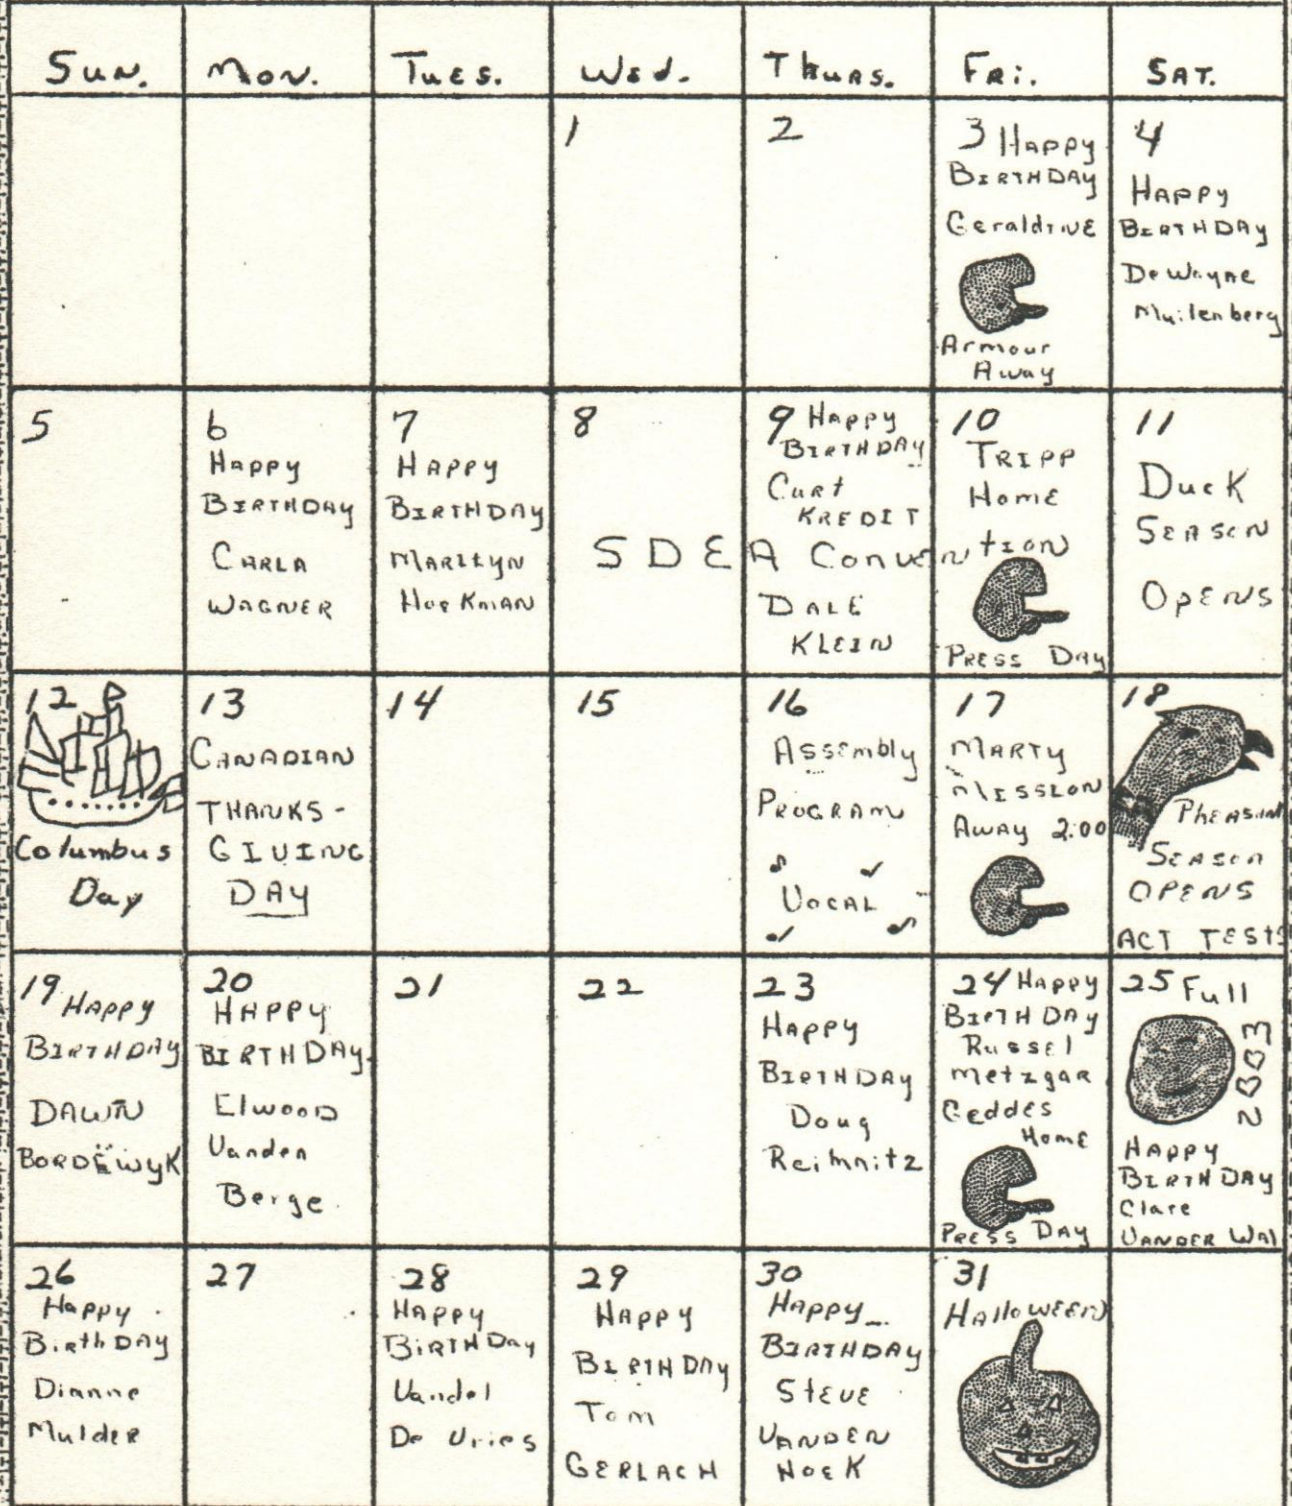 Sun. Mon. Tues. Wed. Thurs. Fri. Sat.
1
2
3 Happy
Birthday
Geraldine
Armour
Away
4
Happy
Birthday
DeWayne
Muilenberg
5
6
Happy
Birthday
Carla
Wagner
7
Happy
Birthday
Marilyn
Hoekman
8
SDEA Convention
9 Happy
Birthday
Curt
Kredit
Dale
Klein
10
Tripp
Home
Press Day
11
Duck
Season
Opens
12
Columbus
Day
13
Canadian
Thanks-
Giving
Day
14
15
16
Assembly
Program
Vocal
17
Marty
Mission
Away 2:00
18
Season
Opens
ACT Tests
19 Happy
Birthday
Dawn
Bordewyk
20
Happy
Birthday
Elwood
Vanden
Berge
21
22
23
Happy
Birthday
Doug
Reimnitz
24 Happy
Birthday
Russel
Metzgar
Geddes
Home
Press Day
25 Full
Happy
Birthday
Clare
Vander Wal
26
Happy
Birthday
Dianne
Mulder
27
28
Happy
Birthday
Vandel
De Vries
29
Happy
Birthday
Tom
Gerlach
30
Happy
Birthday
Steve
Vanden
Hoek
31
Halloween